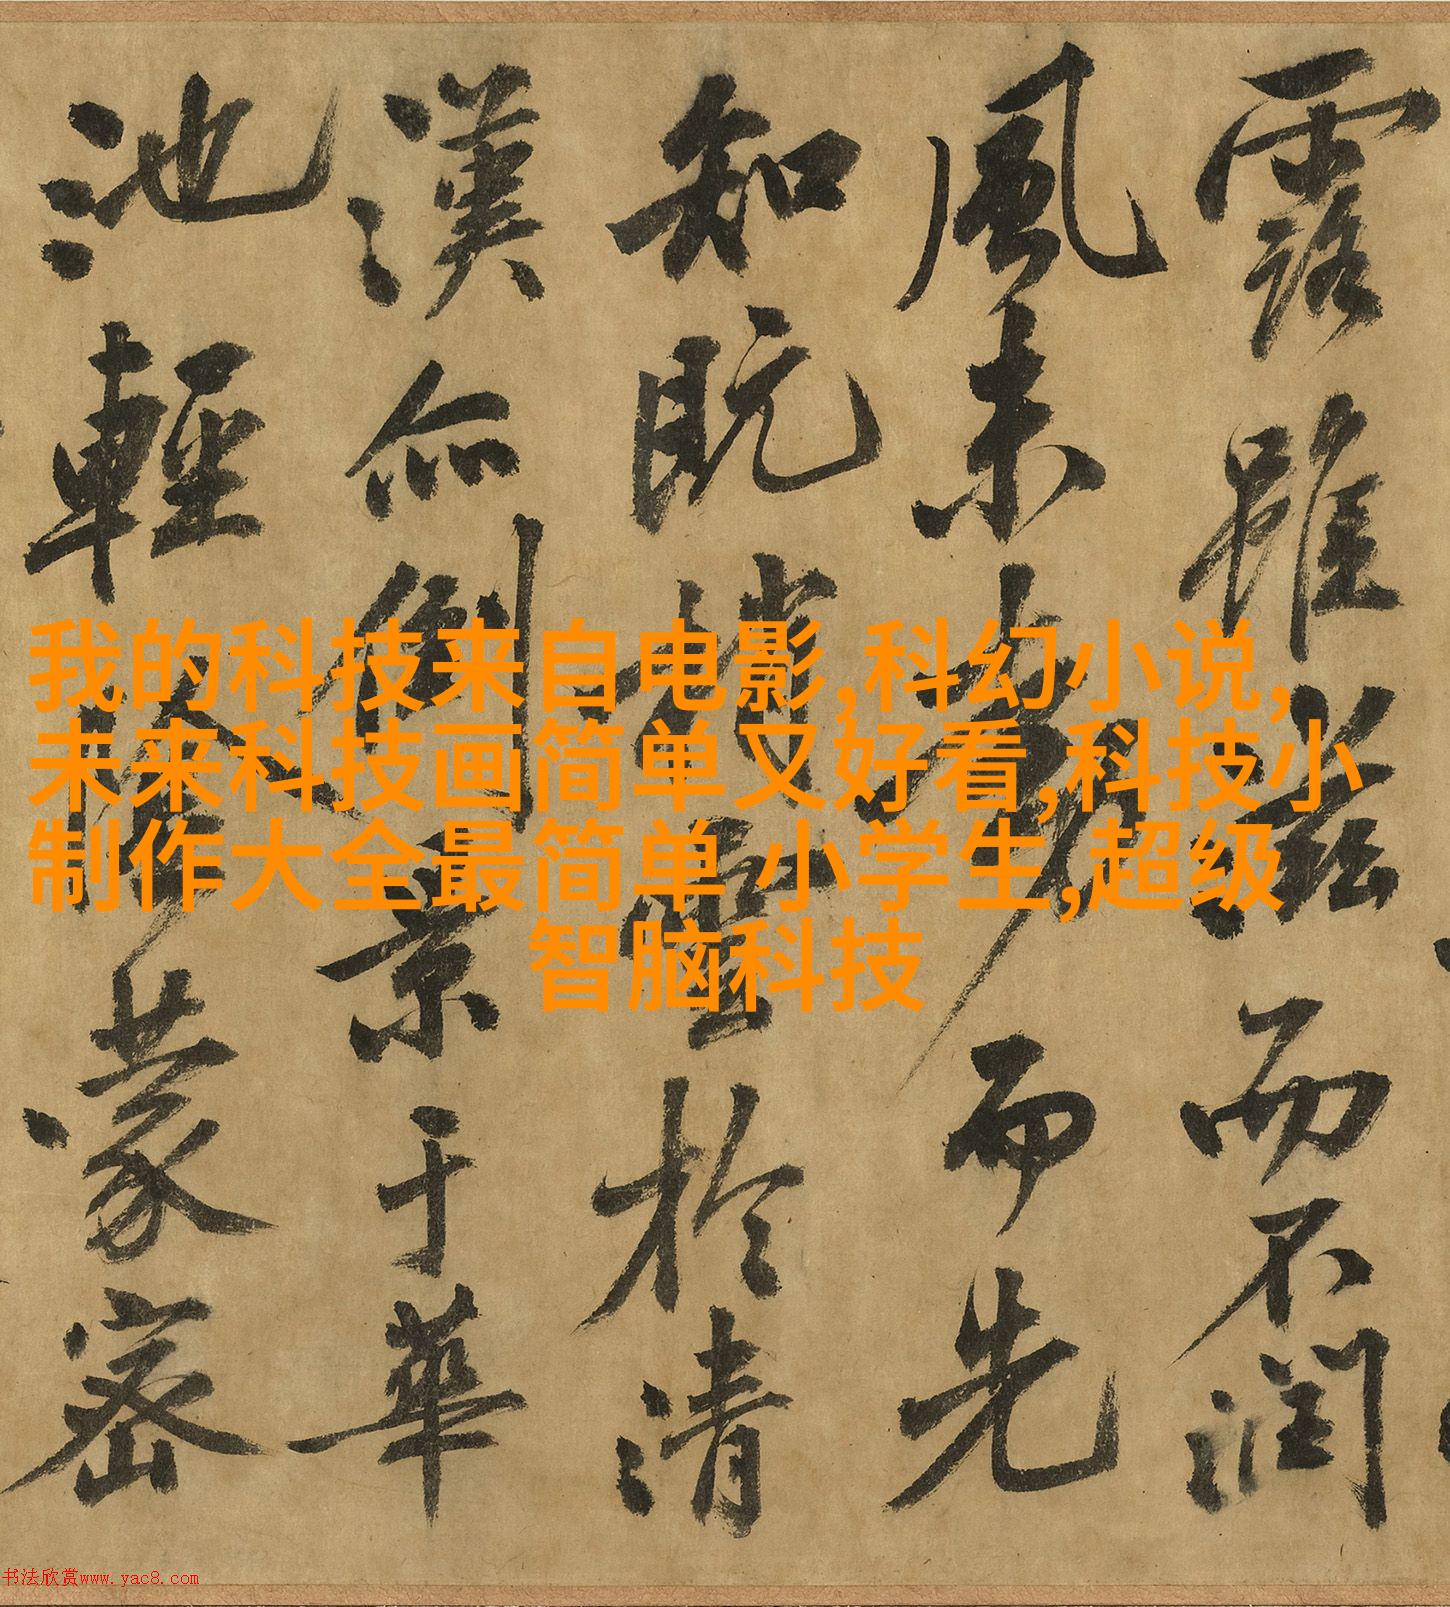 露雖滋而不潤
風未動而先
知既捎雲於清
漢亦倒景于華
池輕陰蒙密
我的科技来自电影,科幻小说,
未来科技画简单又好看,科技小
制作大全最简单 小学生,超级
智脑科技
书法欣赏www.yac8.com